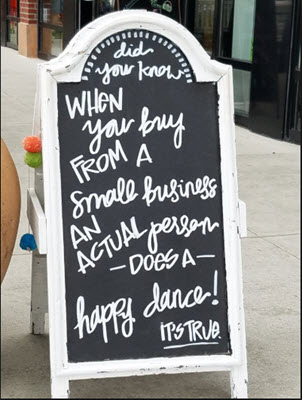 did
you know
WHEN
you buy
FROM A
small business
AN
ACTUAL person
— DOES A —
happy dance!
IT'S TRUE.